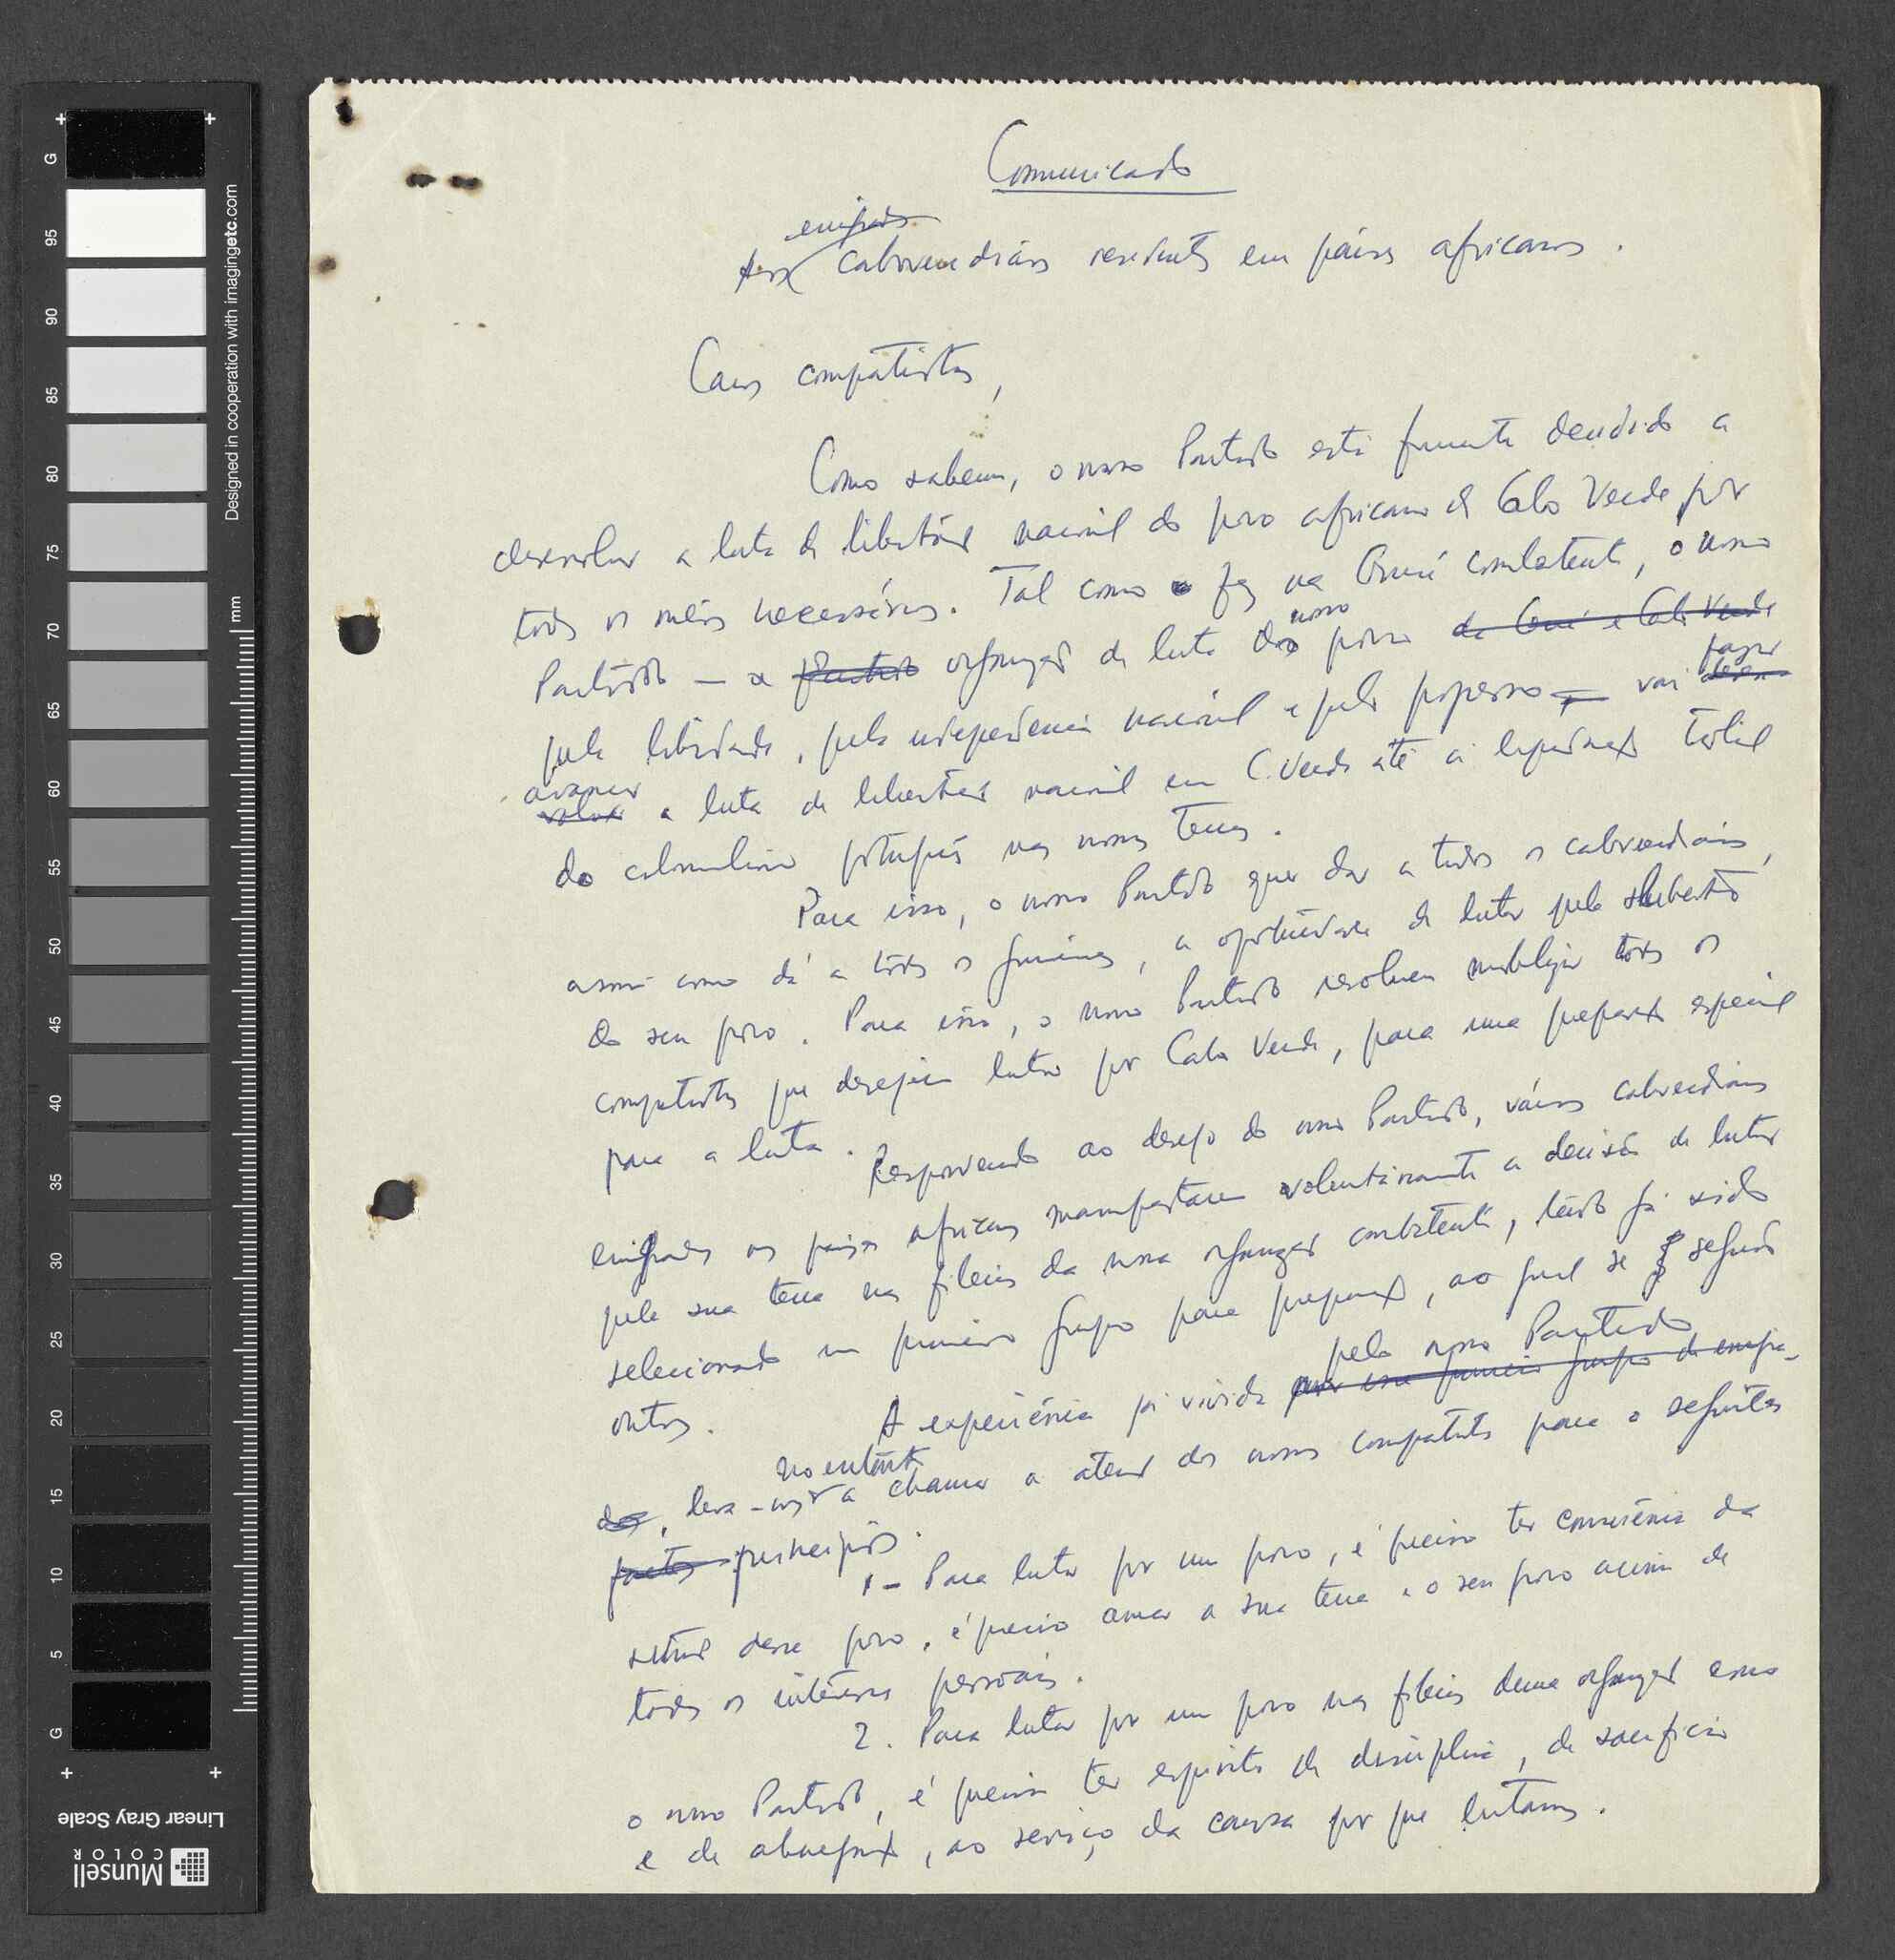 Comunicado
emigrados
Aos caboverdianos residentes em países africanos.
Caros compatriotas,
Como sabem, o nosso Partido está firmemente decidido a
desenvolver a luta de libertação nacional do povo africano de Cabo Verde por
todos os meios necessários. Tal como o fez na Guiné combatente, o nosso
nosso
Partido — a Partido organização de luta do povo da Guiné e Cabo Verde
fazer
pela liberdade, pela independência nacional e pelo progresso — vai desen-
avançar
volver a luta de libertação nacional em C. Verde até à liquidação total
do colonialismo português nas nossas terras.
Para isso, o nosso Partido quer dar a todos os caboverdianos,
assim como dá a todos os guineenses, a oportunidade de lutar pela libertação
do seu povo. Para isso, o nosso Partido resolveu mobilizar todos os
compatriotas que desejem lutar por Cabo Verde, para uma preparação especial
para a luta.
Respondendo ao desejo do nosso Partido, vários caboverdianos
emigrados nos países africanos manifestaram voluntariamente a decisão de lutar
pela sua terra nas fileiras da nossa organização combatente, tendo já sido
selecionado um primeiro grupo para preparação, ao qual se seguirão
outros.
pelo nosso Partido
A experiência já vivida por um primeiro grupo de emigra-
no entanto
dos, leva-nos a chamar a atenção dos nossos compatriotas para o seguintes
pontos princípios.
1 - Para lutar por um povo, é preciso ter consciência da
situação desse povo, é preciso amar a sua terra e o seu povo acima de
todos os interesses pessoais.
2. Para lutar por um povo nas fileiras duma organização como
o nosso Partido, é preciso ter espírito de disciplina, de sacrifício
e de abnegação, ao serviço da causa por que lutamos.
G
95
90
85
80
75
70
65
60
55
50
45
40
35
30
25
20
15
10
5
G
mm
Designed in cooperation with imagingetc.com
Linear Gray Scale
Munsell
COLOR